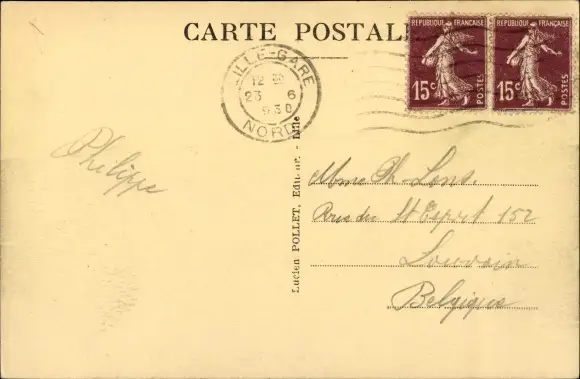 CARTE POSTALE
RÉPUBLIQUE FRANÇAISE
15c POSTES
RÉPUBLIQUE FRANÇAISE
15c POSTES
LILLE-GARE
12 30
23 6
930
NORD
Philippe
Mme Ph. Lens.
Rue du St Esprit 152
Louvain
Belgique
Lucien POLLET, Editeur. - Lille